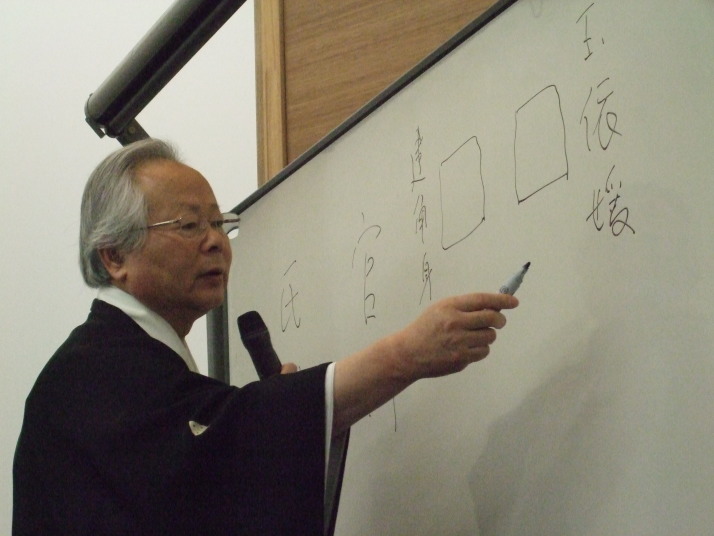 玉依媛
建角身
官
氏